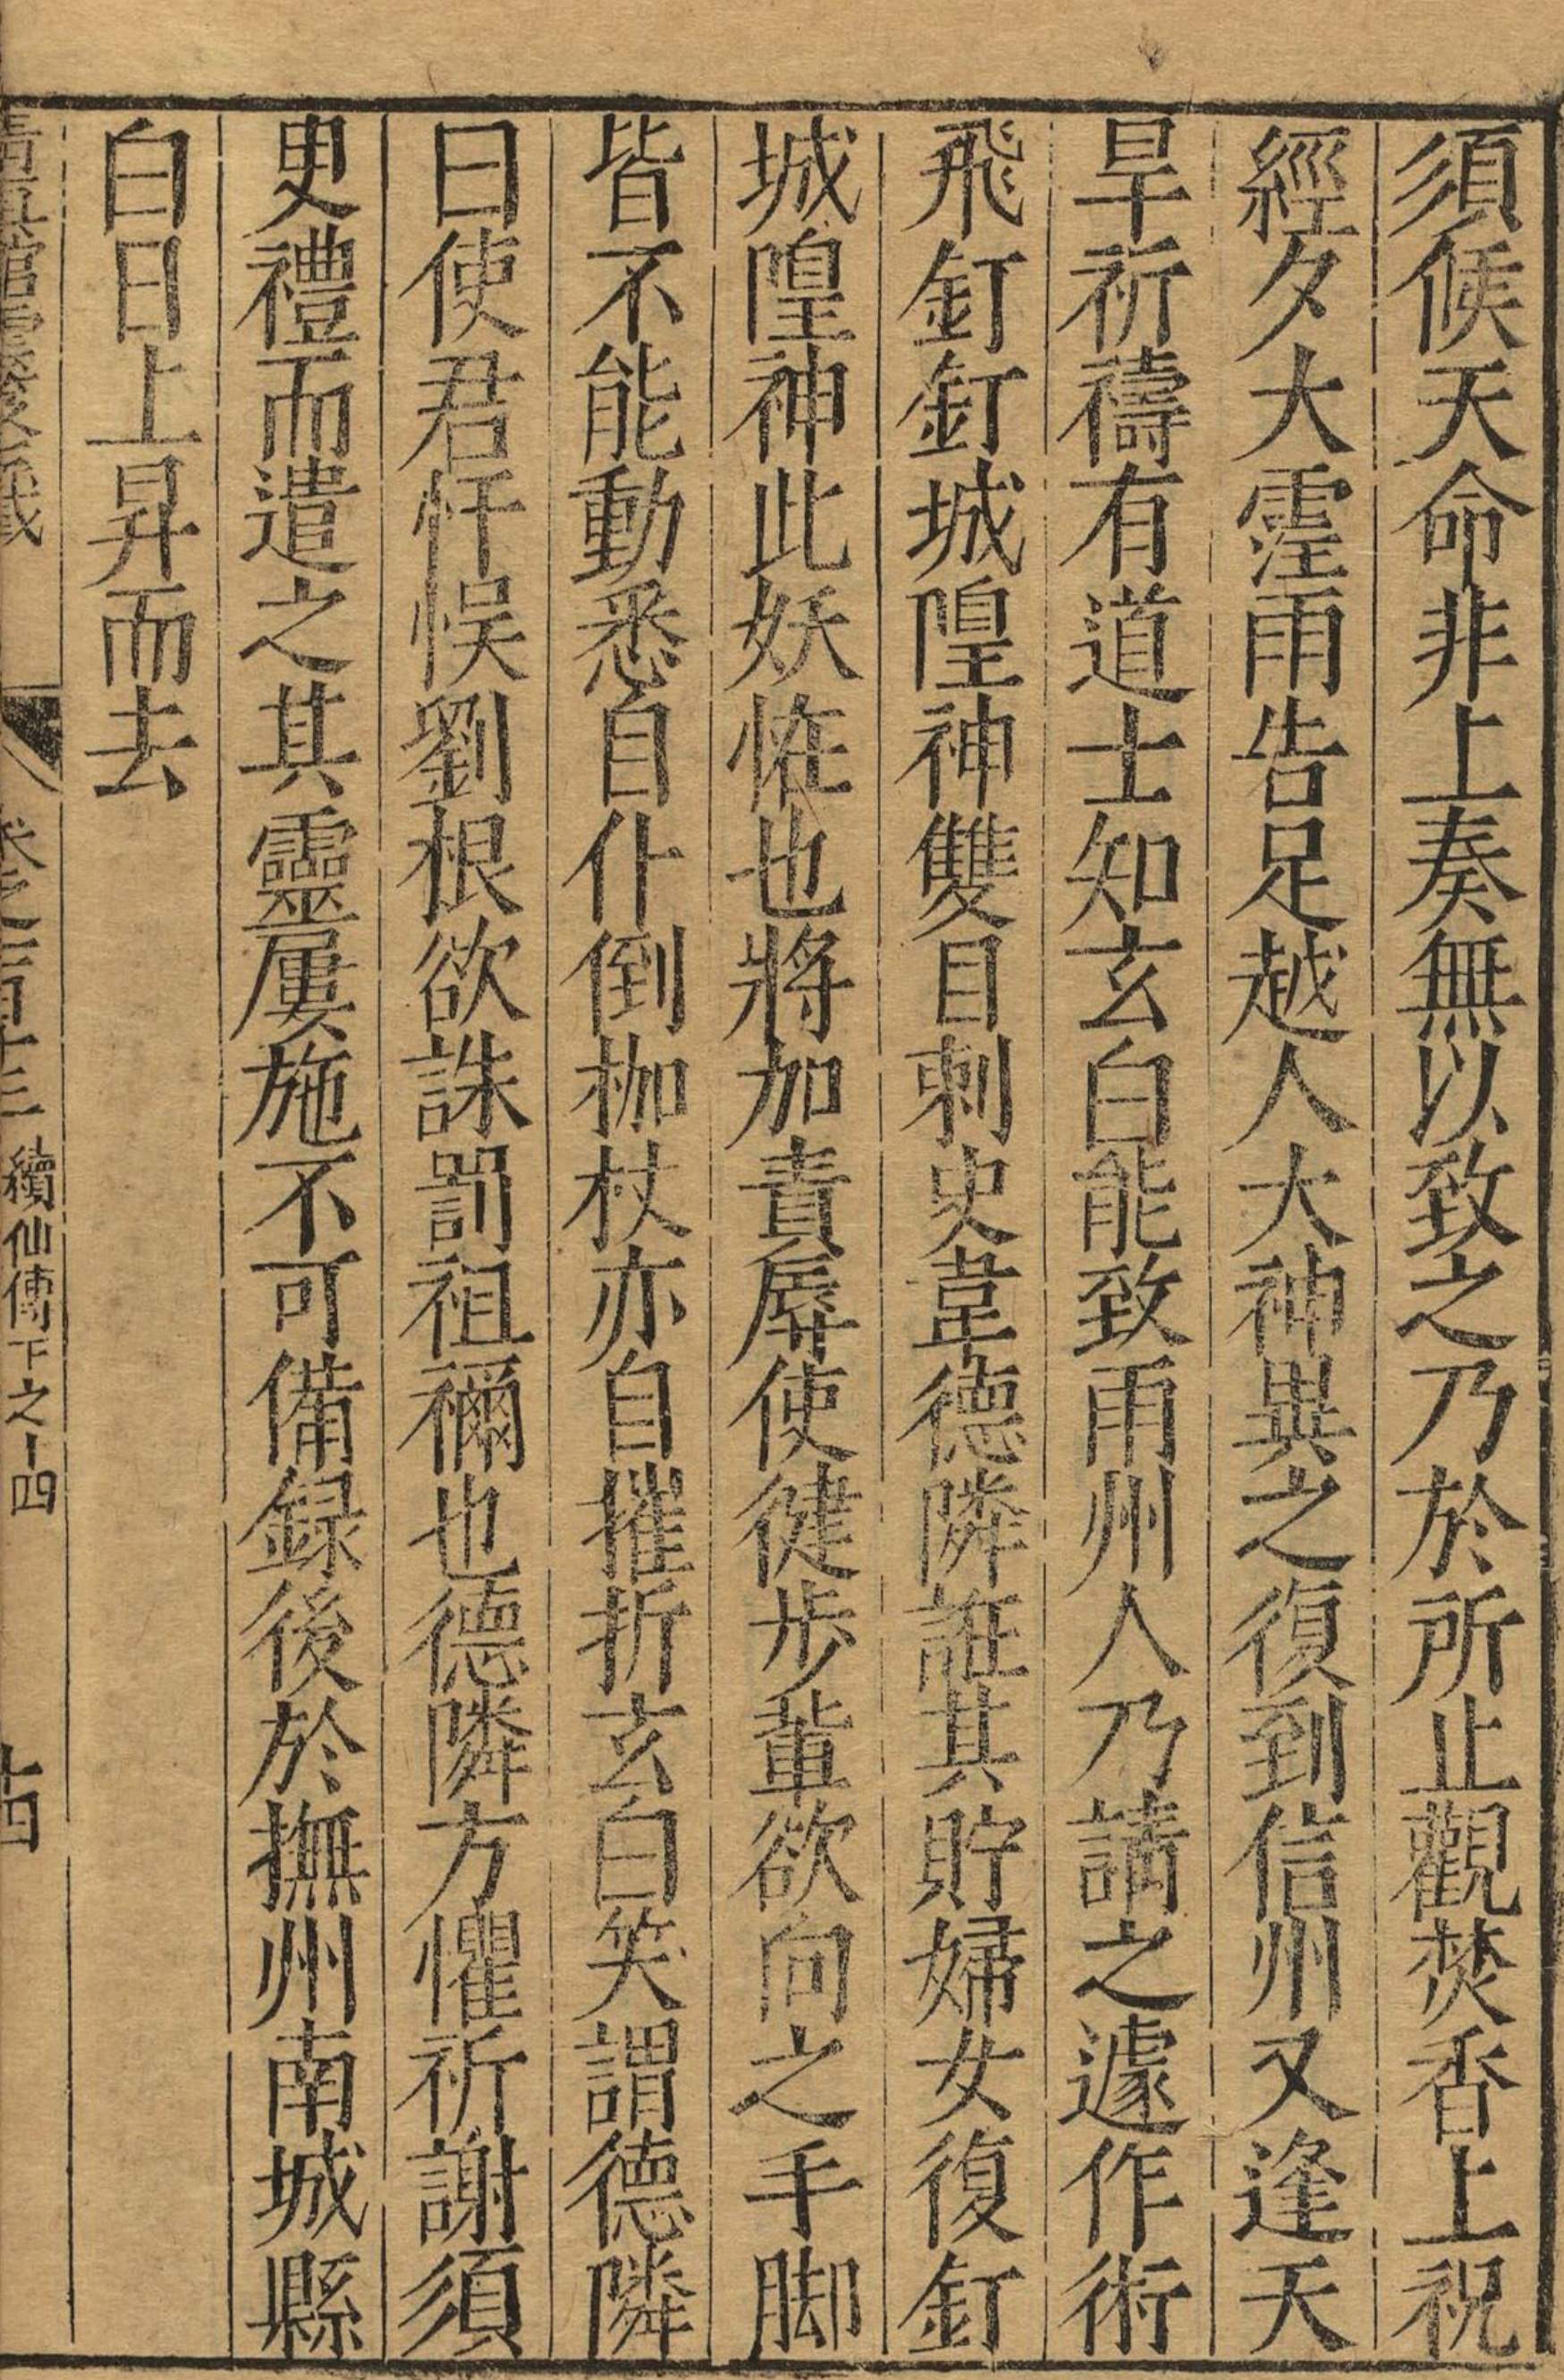 須候天命非上奏無以致之乃於所止觀焚香上祝
經夕大霔雨告足越人大神異之復到信州又逢天
旱祈禱有道士知玄白能致雨州人乃請之遽作術
飛釘釘城隍神雙目刺史韋德隣誑其貯婦女復釘
城隍神此妖恠也將加責辱使健步輩欲向之手脚
皆不能動悉自仆倒枷杖亦自摧折玄白笑謂德隣
曰使君忏悮劉根欲誅罰祖禰也德隣方懼祈謝須
㬰禮而遣之其靈屢施不可備録後於撫州南城縣
白日上昇而去
卷之一百十三 續仙傳下之十四
十四